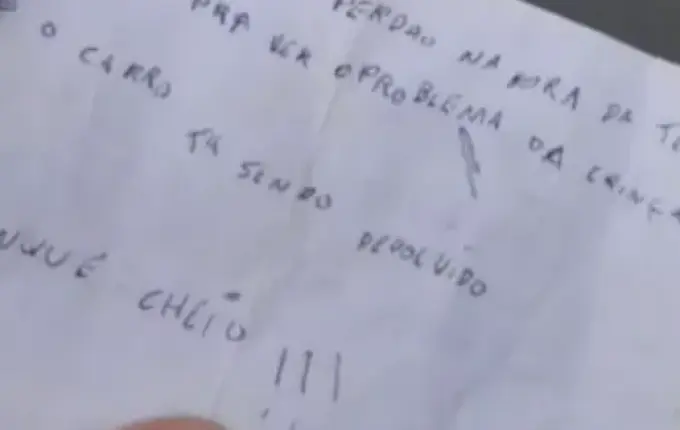 PERDAO NA HORA DA
PRA VER O PROBLEMA DA
O CARRO TA SENDO DEVOLVIDO
CHEIO !!!